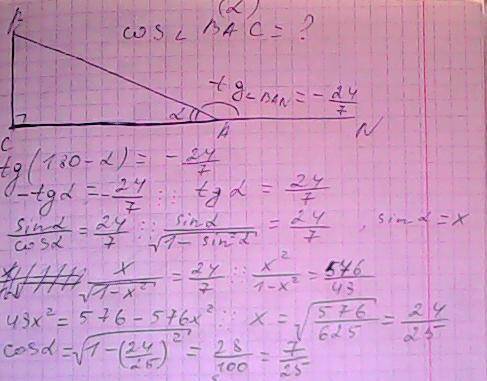 (α)
cos ∠ BAC = ?
B
tg ∠BAN = - 24/7
α
C A N
tg(180 - α) = - 24/7
- tg α = - 24/7 ⋮⋮ tg α = 24/7
sin α / cos α = 24/7 ⋮⋮ sin α / √(1 - sin² α) = 24/7 , sin α = x
x / √(1 - x²) = 24/7 ⋮⋮ x² / (1 - x²) = 576/49
49x² = 576 - 576x² ⋮⋮ x = √(576/625) = 24/25
cos α = √(1 - (24/25)²) = 28/100 = 7/25